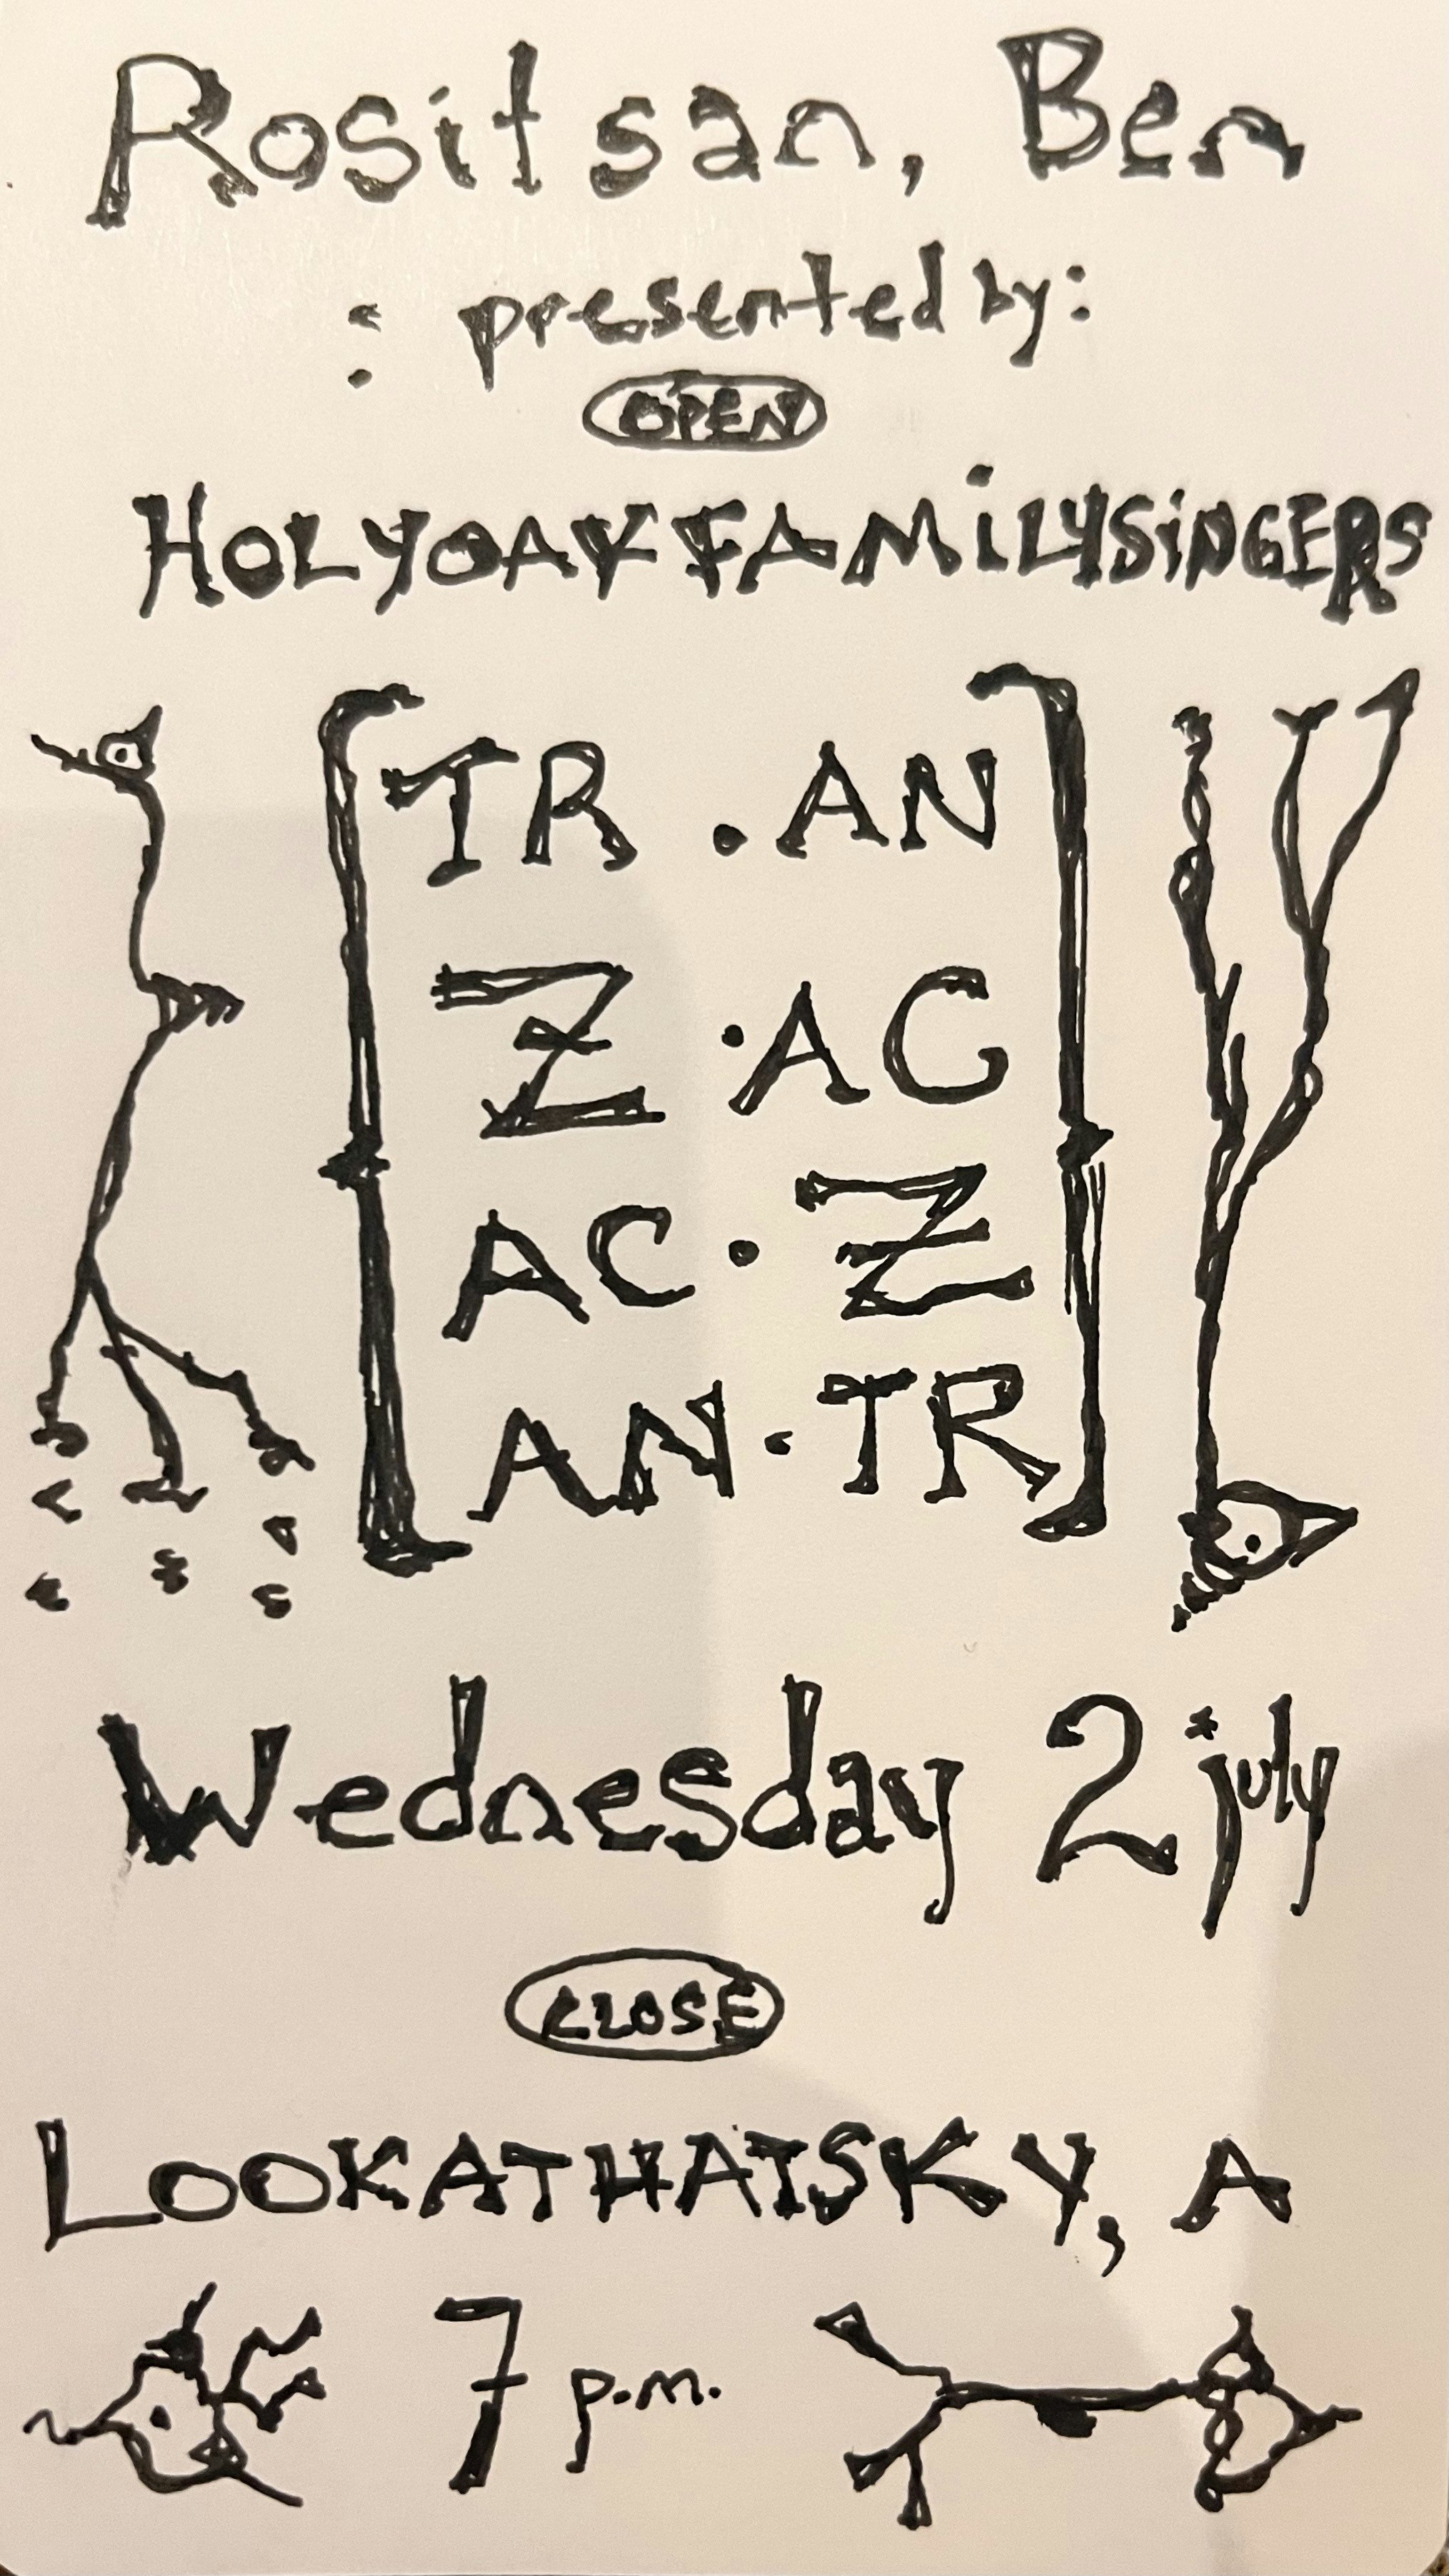 Rositsan, Ben
: presented by:
OPEN
HOLYOAKFAMiLYSiNGERS
TR . AN
Z · AC
AC · Z
AN · TR
Wednesday 2 july
CLOSE
LOOKATHATSKY, A
7 p.m.